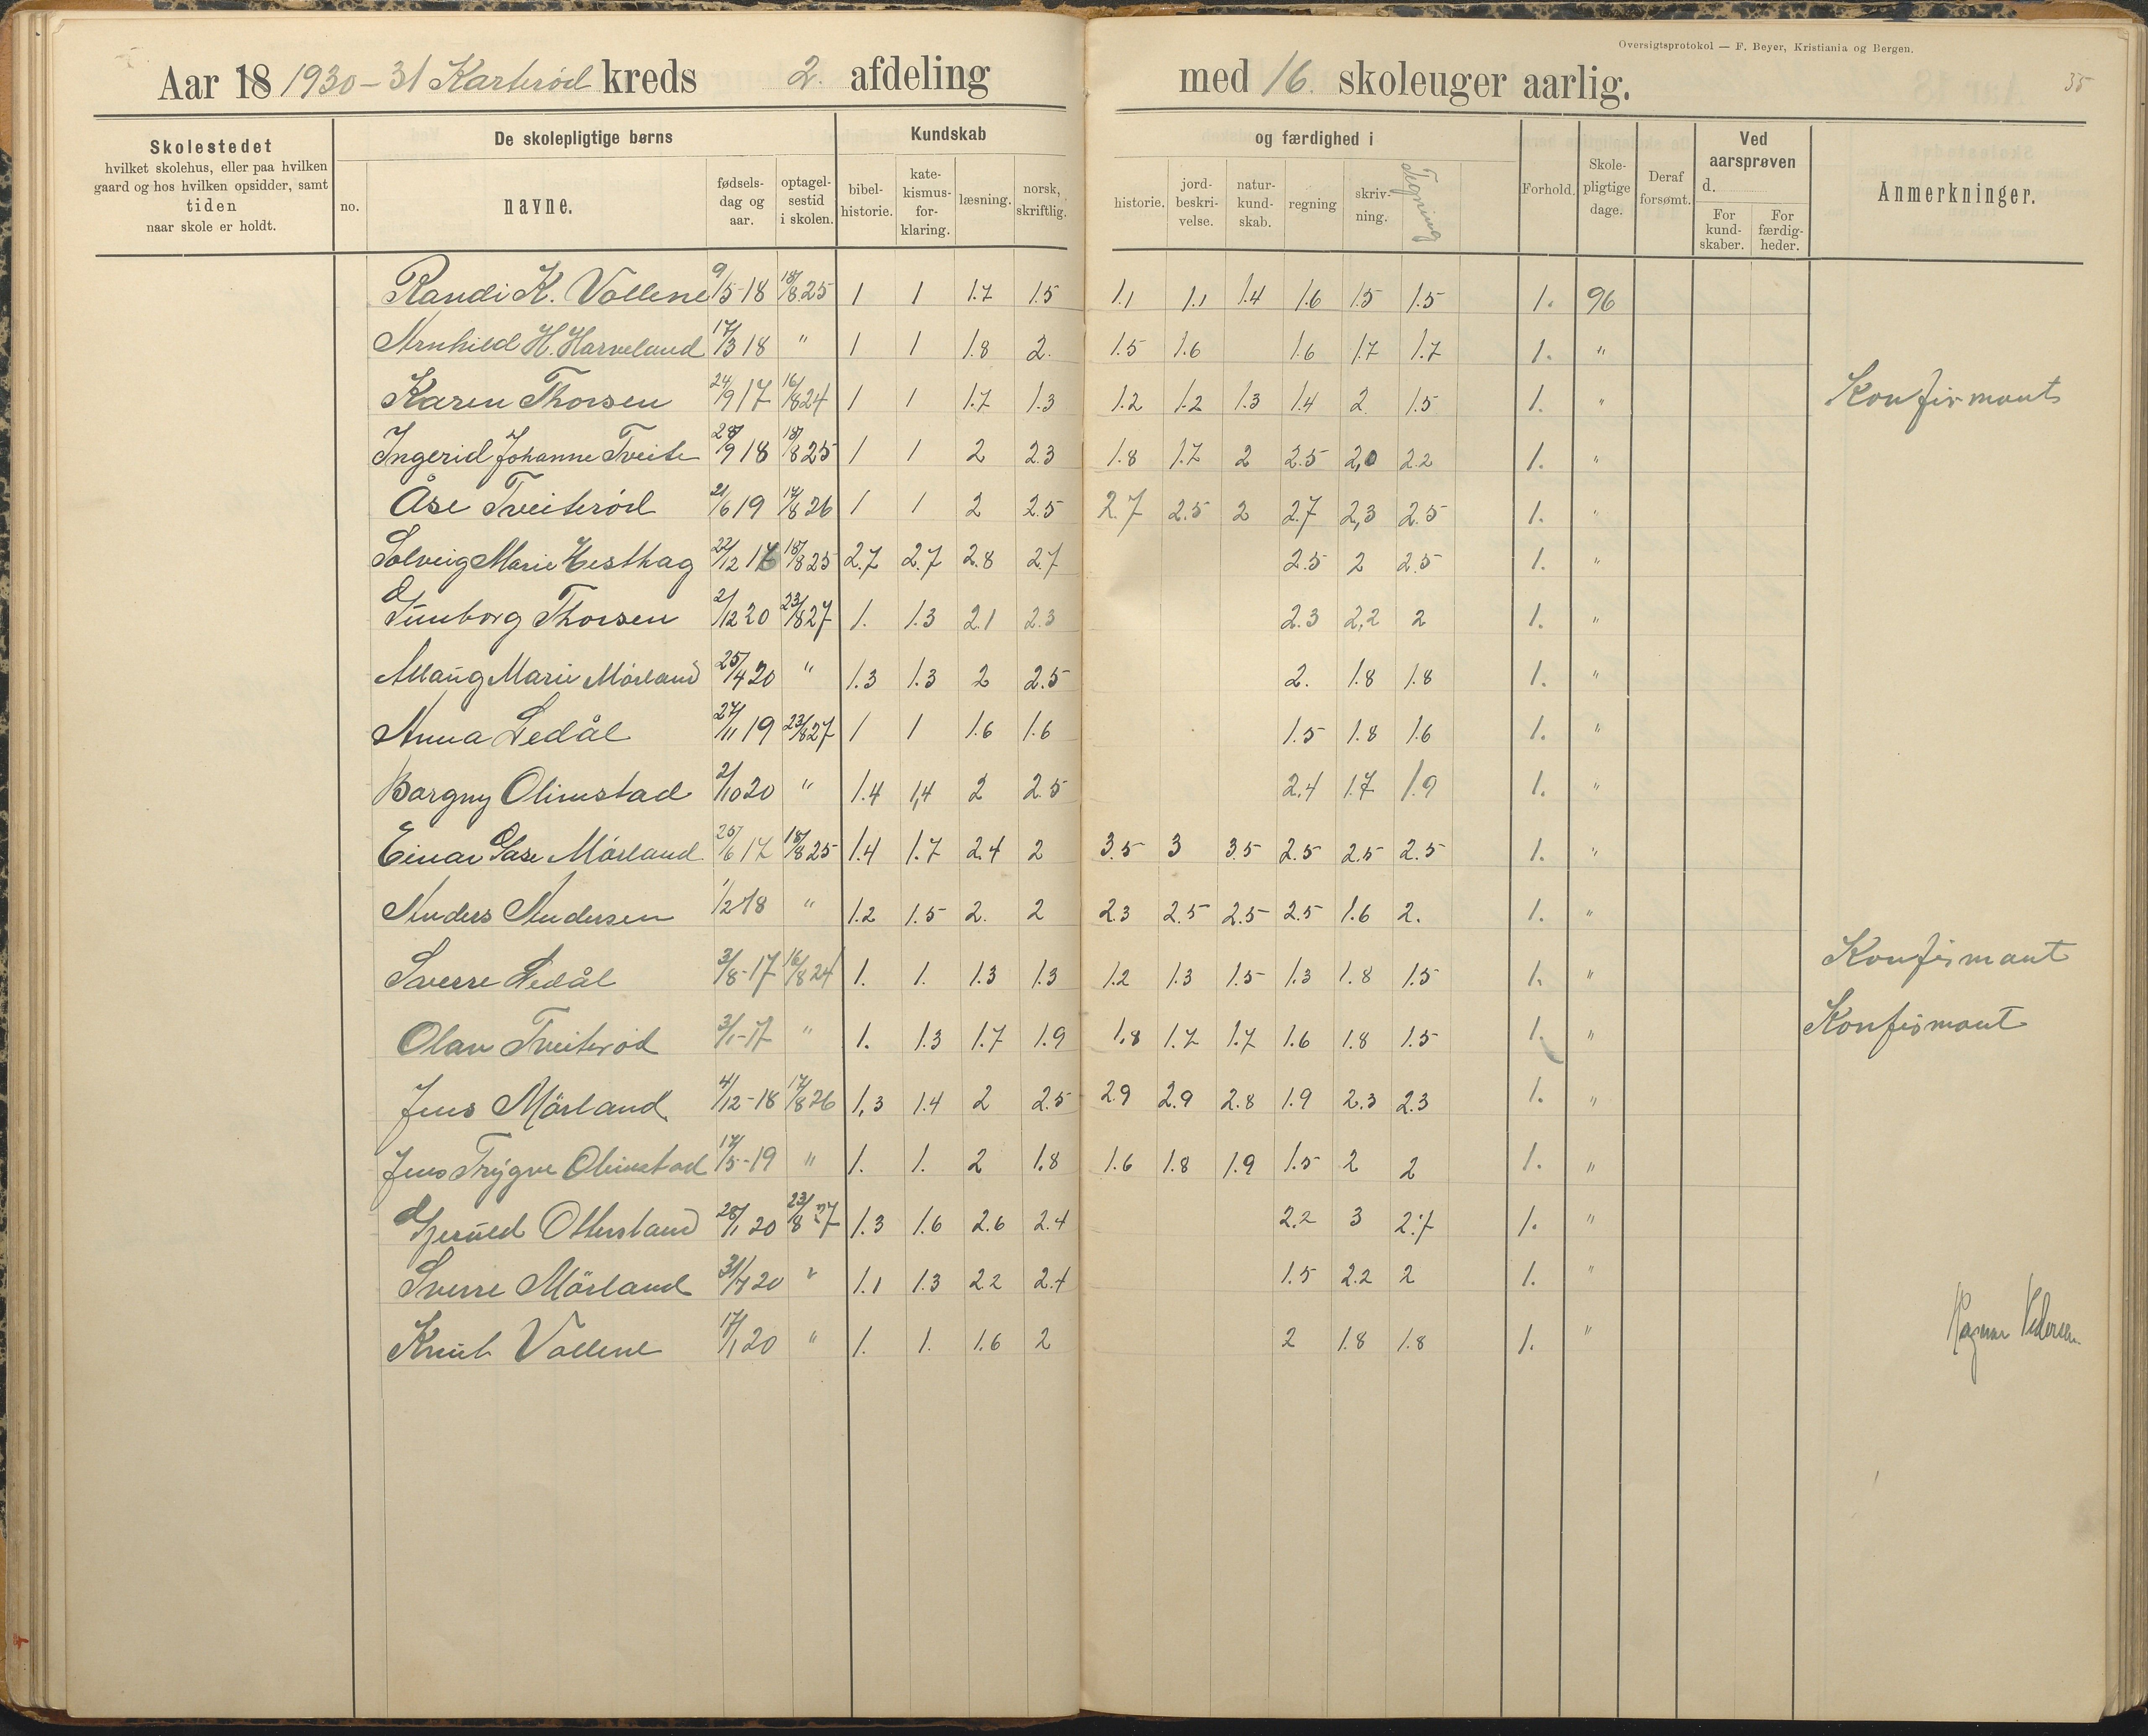 Oversigtsprotokol — F. Beyer, Kristiania og Bergen.
35
Aar 18 1930-31 Karterød kreds 2. afdeling med 16. skoleuger aarlig.
Skolestedet
hvilket skolehus, eller paa hvilken
gaard og hos hvilken opsidder, samt
tiden
naar skole er holdt.
De skolepligtige børns
no.
navne.
fødsels-
dag og
aar.
optagel-
sestid
i skolen.
Kundskab
bibel-
historie.
kate-
kismus-
for-
klaring.
læsning.
norsk,
skriftlig.
og færdighed i
historie.
jord-
beskri-
velse.
natur-
kund-
skab.
regning
skriv-
ning.
Tegning
Forhold.
Skole-
pligtige
dage.
Deraf
forsømt.
Ved
aarsprøven
d.
For
kund-
skaber.
For
færdig-
heder.
Anmerkninger.
Randi K. Vollene 9/5-18 18/8 25 1 1 1.7 1.5 1.1 1.1 1.4 1.6 1.5 1.5 1. 96
Arnhild H. Harveland 17/3 18 " 1 1 1.8 2. 1.5 1.6 1.6 1.7 1.7 1. "
Karen Thorsen 24/9 17 16/8 24 1 1 1.7 1.3 1.2 1.2 1.3 1.4 2 1.5 1. " Konfirmant
Ingerid Johanne Tveite 28/9 18 18/8 25 1 1 2 2.3 1.8 1.7 2 2.5 2,0 2.2 1. "
Åse Tveiterød 21/6 19 17/8 26 1 1 2 2.5 2.7 2.5 2 2.7 2,3 2.5 1. "
Solveig Marie Hesthag 22/12 16 18/8 25 2.7 2.7 2.8 2.7 2.5 2 2.5 1. "
Gunborg Thorsen 2/12 20 23/8 27 1. 1.3 2.1 2.3 2.3 2,2 2 1. "
Allaug Marie Mörland 25/4 20 " 1.3 1.3 2 2.5 2. 1.8 1.8 1. "
Anna Ledål 27/11 19 23/8 27 1 1 1.6 1.6 1.5 1.8 1.6 1. "
Borgny Olimstad 2/10 20 " 1.4 1,4 2 2.5 2.4 1.7 1.9 1. "
Einar Gase Mörland 25/6 17 18/8 25 1.4 1.7 2.4 2 3.5 3 3.5 2.5 2.5 2.5 1. "
Anders Andersen 1/2 18 " 1.2 1.5 2. 2 2.3 2.5 2.5 2.5 1.6 2. 1. "
Sverre Ledål 3/8-17 16/8 24 1. 1. 1.3 1.3 1.2 1.3 1.5 1.3 1.8 1.5 1. " Konfirmant
Olav Tveiterød 3/1-17 " 1. 1.3 1.7 1.9 1.8 1.7 1.7 1.6 1.8 1.5 1. " Konfirmant
Jens Mörland 4/12-18 17/8 26 1,3 1.4 2 2.5 2.9 2.9 2.8 1.9 2.3 2.3 1. "
Jens Trygve Olimstad 17/5-19 " 1. 1. 2 1.8 1.6 1.8 1.9 1.5 2 2 1. "
Gjeruld Otterstand 28/1 20 23/8 27 1.3 1.6 2.6 2.4 2.2 3 2.7 1. "
Sverre Mörland 31/7 20 " 1.1 1.3 2.2 2.4 1.5 2.2 2 1. "
Knut Vollene 17/1 20 " 1. 1. 1.6 2 2 1.8 1.8 1. "
Ragnar Pedersen